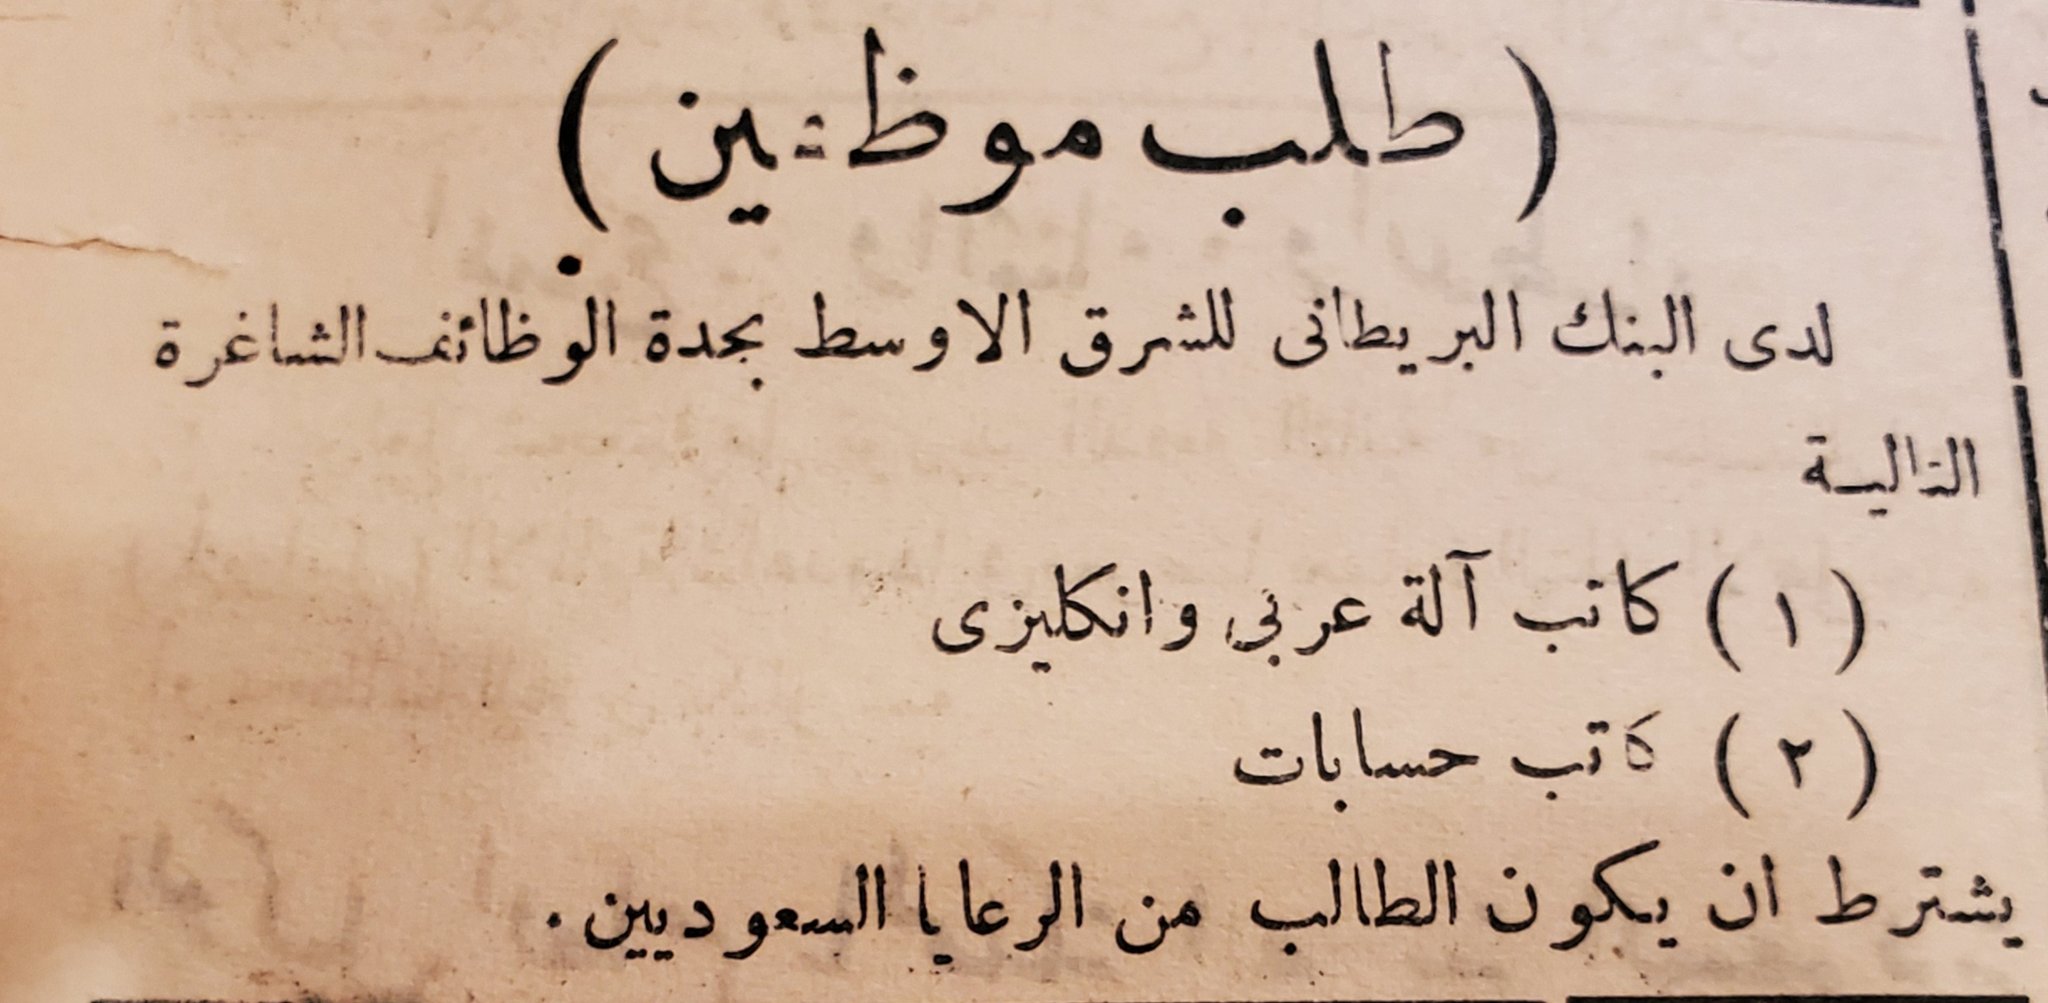 ( طلب موظفين )
لدى البنك البريطانى للشرق الاوسط بجدة الوظائف الشاغرة
التالية
( ١ ) كاتب آلة عربي وانكليزى
( ٢ ) كاتب حسابات
يشترط ان يكون الطالب من الرعايا السعوديين .